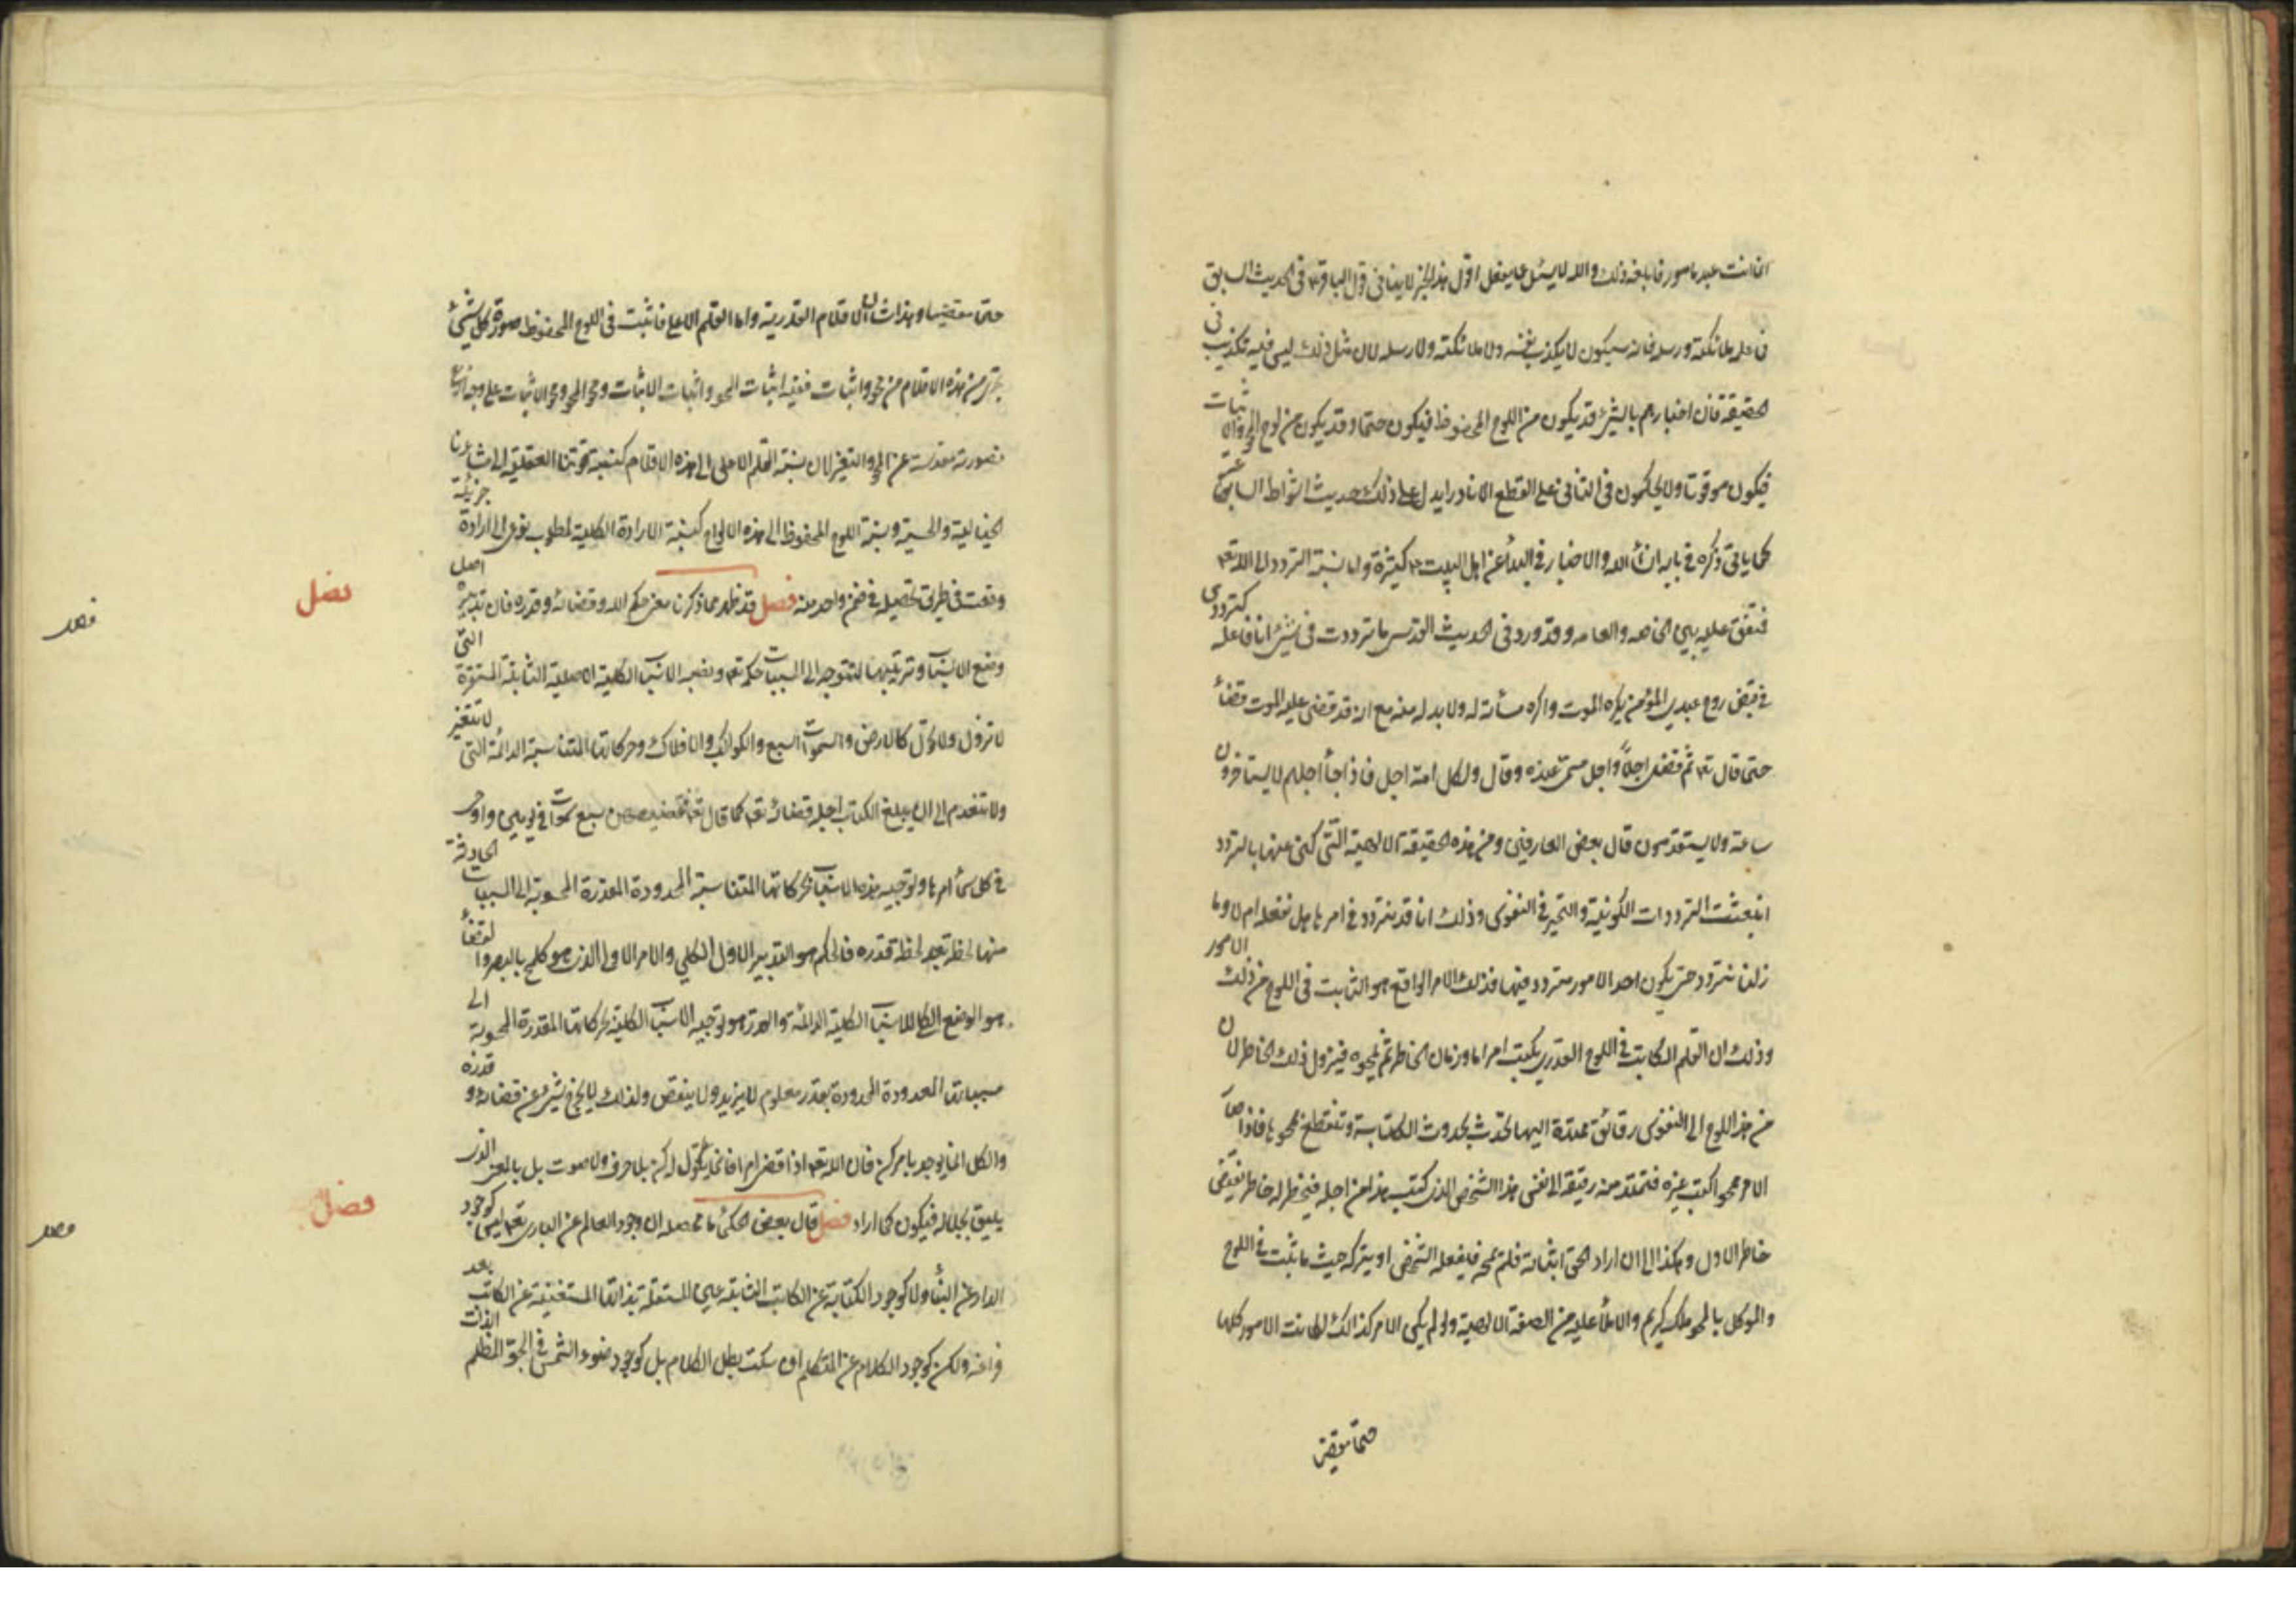 انما انت عبد مامور فابلغه ذلك والله لا يسئل عما يفعل اقول هذا الخبر لا ينافي قول الباقر ع في الحديث السابق
فما علمه ملائكته ورسله فانه سيكون لا يكذب نفسه ولا ملائكته ولا رسله لان مثل ذلك ليس فيه تكذيب في
الحقيقة فان اخبارهم بالشيء قد يكون من اللوح المحفوظ فيكون حتما وقد يكون من لوح المحو والاثبات
فيكون موقوتا ولا يحكمون في الثاني على القطع الا نادرا يدل على ذلك حديث السابق
كما ياتي ذكره في بابه ان شاء الله والاخبار في البدأ عن اهل البيت ع كثيرة واما نسبة التردد الى الله تعالى
فمتفق عليه بين الخاصه والعامه وقد ورد في الحديث القدسي ما ترددت في شيء انا فاعله كترددي
في قبض روح عبدي المؤمن يكره الموت واكره مسأته له ولا بد له منه مع انه قد قضى عليه الموت قضأ
حتما قال تع ثم قضى اجلاً واجل مسمى عنده وقال ولكل امة اجل فاذا جأ اجلهم لا يستاخرون
ساعة ولا يستقدمون قال بعض العارفين ومن هذه الحقيقة الالهية التي كنى عنها بالتردد
انبعثت الترددات الكونية والتحير في النفوس وذلك انا قد نتردد في امر ما هل نفعله ام لا وما
زلنا نتردد حتى يكون احد الامور متردد فيها فذلك الامر الواقع هو الثابت في اللوح من ذلك الامور
وذلك ان القلم الكاتب في اللوح القدري يكتب امرا ما وزمان الخاطر ثم يمحوه فيزول ذلك الخاطر لان
من هذا اللوح الى النفوس رقائق ممتدة اليها تحدث بحدوث الكتابة وتنقطع بمحوها فاذا صار
الامر ممحوا كتب غيره فتمتد منه رقيقة الى نفس هذا الشخص الذي كتب هذا من اجله فيخطر له خاطر نقيض
خاطر الاول وهكذا الى ان اراد الحق اثباته فلم يمحه فيفعله الشخص او يتركه حيث ما ثبت في اللوح
والموكل بالمحو ملك كريم والاملأ عليه من الصفة الالهية ولو لم يكن الامر كذالك لكانت الامور كلها
حتما مقضيا
حتما مقضيا وهذا شان الاقلام القدرية واما القلم الاعلى فاثبت في اللوح المحفوظ صورة كل شيء
يجري من هذه الاقلام من محو واثبات ففيه اثبات المحو واثبات الاثبات ومحو المحو ومحو الاثبات على وجه ارفع
فصورته مقدسة عن المحو والتغير لان نسبة القلم الاعلى الى هذه الاقلام كنسبة قوتنا العقلية الى مشاعرنا
الخيالية والحسية ونسبة اللوح المحفوظ الى هذه الالواح كنسبة الارادة الكلية لمطلوب نوعي الى ارادة جزئية
وقعت في طريق تحصيله في ضمن واحد منه فصل قد ظهر مما ذكرنا معنى حكم الله وقضائه وقدره فان تدبيره اصل
وضع الاسباب وترتيبها لتتوجه الى المسببات حكمه تع ونصبه الاسباب الكلية الاصلية الثابتة المستقرة التي
لا تزول ولا تحول كالارض والسموات السبع والكواكب والافلاك وحركاتها المتناسبة الدائمة التي لا تتغير
ولا تنعدم الى ان يبلغ الكتاب اجله قضائه تع كما قال تع فقضيهن سبع سموات في يومين واوحى
في كل سمأ امرها وتوجيه هذه الاسباب بحركاتها المتناسبة المحدودة المقدرة المحسوبة الى المسببات الحادثة
منها لحظة بعد لحظة قدره فالحكم هو التدبير الاول الكلي والامر الاولى الذي هو كلمح بالبصر والقضأ
هو الوضع الكلي للاسباب الكلية الدائمة والقدر هو توجيه الاسباب الكلية بحركاتها المقدرة المحسوبة الى
مسبباتها المعدودة المحدودة بقدر معلوم لا يزيد ولا ينقص ولذلك لا يخرج شيء عن قضائه و قدره
والكل انما يوجد بامر كن فان الله تع اذا قضى امرا فانما يقول له كن بلا حرف ولا صوت بل بالمعنى الذي
يليق بجلاله فيكون كما اراد فصل قال بعض الحكمأ ما محصله ان وجود العالم عن الباري تع ليس كوجود
الدار عن البنأ ولا كوجود الكتابة عن الكاتب الثابتة العين المستقلة بذاتها المستغنية عن الكاتب بعد
فراغه ولكن كوجود الكلام عن المتكلم ان سكت بطل الكلام بل كوجود ضوء الشمس في الجو المظلم الذات
فصل
فصل
فصل
فصل